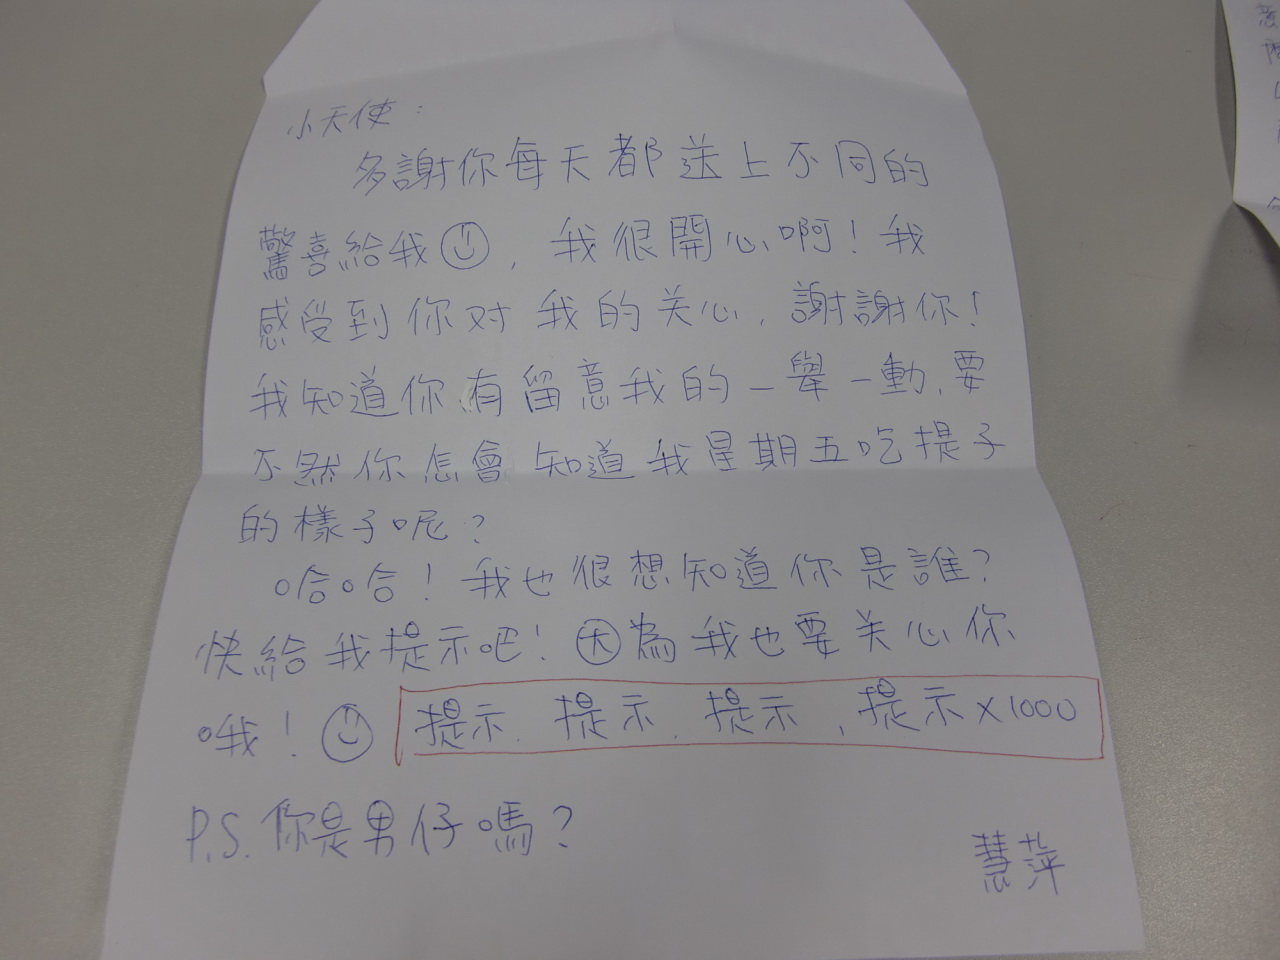 小天使：
多謝你每天都送上不同的
驚喜給我☺，我很開心啊！我
感受到你对我的关心，謝謝你！
我知道你有留意我的一舉一動，要
不然你怎會知道我星期五吃提子
的樣子呢？
哈哈！我也很想知道你是誰？
快給我提示吧！因為我也要关心你
哦！☺ 提示、提示、提示、提示×1000
P.S. 你是男仔嗎？
慧萍